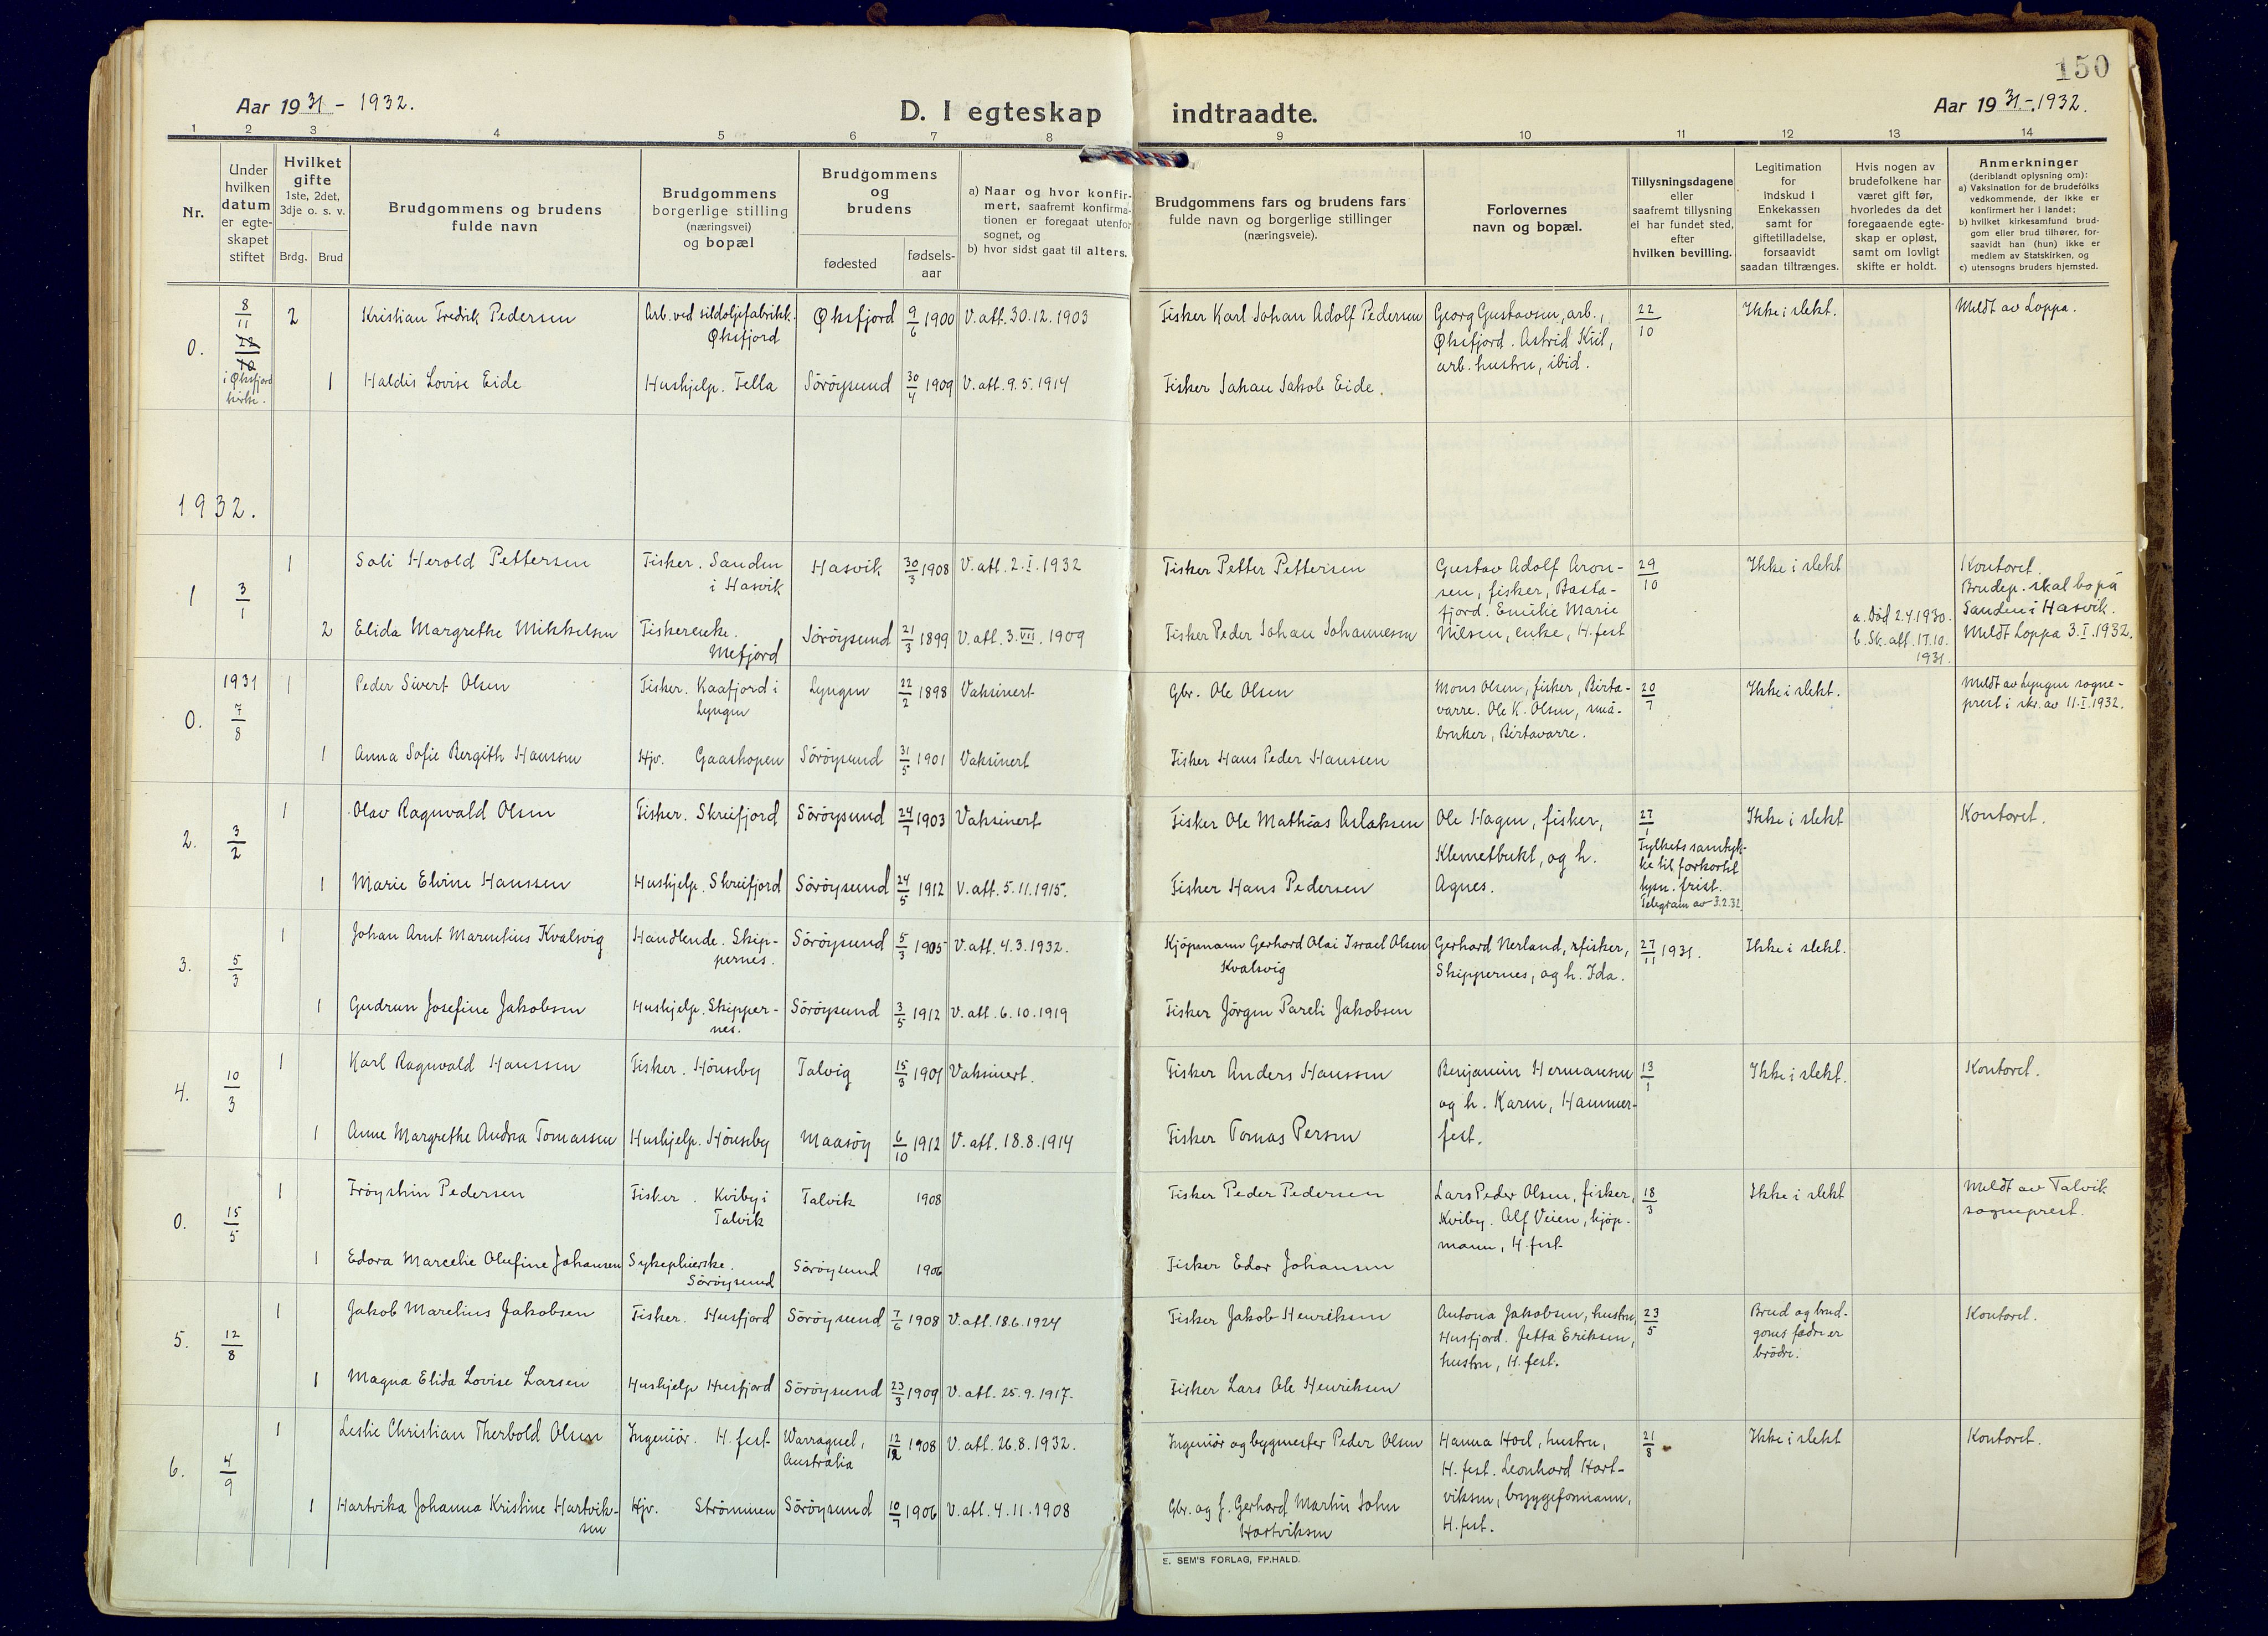 150
Aar 1931 - 1932.
D. I egteskap indtraadte.
Aar 1931 - 1932.
1 2 3 4 5 6 7 8 9 10 11 12 13 14
Nr.
Under hvilken datum er egte-skapet stiftet
Hvilket gifte 1ste, 2det, 3dje o. s. v.
Brdg. Brud
Brudgommens og brudens fulde navn
Brudgommens borgerlige stilling (næringsvei) og bopæl
Brudgommens og brudens
fødested
fødsels-aar
a) Naar og hvor konfir-mert, saafremt konfirma-tionen er foregaat utenfor sognet, og
b) hvor sidst gaat til alters.
Brudgommens fars og brudens fars fulde navn og borgerlige stillinger (næringsveie).
Forlovernes navn og bopæl.
Tillysningsdagene eller saafremt tillysning ei har fundet sted, efter hvilken bevilling.
Legitimation for indskud i Enkekassen samt for giftetilladelse, forsaavidt saadan tiltrænges.
Hvis nogen av brudefolkene har været gift før, hvorledes da det foregaaende egte-skap er opløst, samt om lovligt skifte er holdt.
Anmerkninger (deriblandt oplysning om):
a) Vaksination for de brudefolks vedkommende, der ikke er konfirmert her i landet;
b) hvilket kirkesamfund brud-gom eller brud tilhører, for-saavidt han (hun) ikke er medlem av Statskirken, og
c) utensogns bruders hjemsted.
0. 8/11 22/10 i Øksfjord kirke. 2 Kristian Fredrik Pedersen Arb. ved sildoljefabrikk. Øksfjord Øksfjord 9/6 1900 V. att. 30.12.1903 Fisker Karl Johan Adolf Pedersen Georg Gustavsen, arb., Øksfjord. Astrid Kiil, arb. hustru, ibid. 22/10 Ikke i slekt. Meldt av Loppa.
1 Haldis Lovise Eide Hushjelp. Fella Söröysund 30/4 1909 V. att. 9.5.1914 Fisker Johan Jakob Eide.
1932.
1 3/1 1 Soli Herold Pettersen Fisker. Sanden i Hasvik Hasvik 30/3 1908 V. att. 2.I.1932 Fisker Petter Pettersen Gustav Adolf Aron-sen, fisker, Basta-fjord. Emilie Marie Nilsen, enke, H.fest 29/10 Ikke i slekt Kontoret. Brudep. skal bo på Sanden i Hasvik. Meldt Loppa 3.I.1932.
2 Elida Margrethe Mikkelsen Fiskerenke. Mefjord Söröysund 21/3 1899 V. att. 3.VII.1909 Fisker Peder Johan Johannesen a. Död 2.4.1930. b. Sk. att. 17.10. 1931.
0. 1931 7/8 1 Peder Sivert Olsen Fisker. Kaafjord i Lyngen Lyngen 22/2 1898 Vaksinert Gbr. Ole Olsen Mons Olsen, fisker, Birta-varre. Ole K. Olsen, små-bruker, Birtavarre. 20/7 Ikke i slekt. Meldt av Lyngen sogne-prest i skr. av 11.I.1932.
1 Anna Sofie Bergith Hanssen Hjv. Gaashopen Söröysund 31/5 1901 Vaksinert Fisker Hans Peder Hanssen
2. 3/2 1 Olav Ragnvald Olsen Fisker. Skreifjord Söröysund 24/7 1903 Vaksinert Fisker Ole Mathias Aslaksen Ole Hagen, fisker, Klemetbukt, og h. Agnes. 27/1 Fylkets samtyk-ke til forkortet lysn. frist. Telegram av 3.2.32. Ikke i slekt Kontoret.
1 Marie Elvine Hanssen Hushjelp. Skreifjord Söröysund 24/5 1912 V. att. 5.11.1915. Fisker Hans Pedersen
3. 5/3 1 Johan Arnt Marentius Kvalsvig Handlende. Skip-pernes. Söröysund 5/3 1905 V. att. 4.3.1932. Kjöpmann Gerhard Olai Israel Olsen Kvalsvig Gerhard Nerland, fisker, Skippernes, og h. Ida. 27/11 1931. Ikke i slekt.
1 Gudrun Josefine Jakobsen Hushjelp. Skipper-nes. Söröysund 3/5 1912 V. att. 6.10.1919 Fisker Jörgen Pareli Jakobsen
4. 10/3 1 Karl Ragnvald Hanssen Fisker. Hönseby Talvig 15/3 1901 Vaksinert. Fisker Anders Hanssen Benjamin Hermansen og h. Karen, Hammer-fest. 13/1 Ikke i slekt. Kontoret.
1 Anne Margrethe Andrea Tomassen Hushjelp. Hönseby Maasöy 6/10 1912 V. att. 18.8.1914 Fisker Tomas Persen
0. 15/5 1 Fröystin Pedersen Fisker. Kviby i Talvik Talvik 1908 Fisker Peder Pedersen Lars Peder Olsen, fisker, Kviby. Alf Veien, kjöp-mann, H.fest 18/3 Ikke i slekt Meldt av Talvik sogneprest.
1 Edora Marcelie Olufine Johansen Sykepleierske. Söröysund Söröysund 1906 Fisker Edor Johansen
5. 12/8 1 Jakob Marelius Jakobsen Fisker. Husfjord Söröysund 7/6 1908 V. att. 18.6.1924 Fisker Jakob Henriksen Antona Jakobsen, hustru, Husfjord. Jetta Eriksen, hustru, H.fest. 23/5 Brud og brud-goms fædre er brödre. Kontoret.
1 Magna Elida Lovise Larsen Hushjelp Husfjord Söröysund 23/3 1909 V. att. 25.9.1917. Fisker Lars Ole Henriksen
6. 4/9 1 Leslie Christian Therbold Olsen Ingeniör. H.fest Warragul, Australia 12/12 1908 V. att. 26.8.1932. Ingeniör og bygmester Peder Olsen Hanna Hoel, hustru, H.fest. Leonhard Hart-viksen, bryggeformann, H.fest. 21/8 Ikke i slekt Kontoret.
1 Hartvika Johanna Kristine Hartvik-sen Hjv. Strömmen Söröysund 10/7 1906 V. att. 4.11.1908 Gbr. og f. Gerhard Martin John Hartviksen
E. SEM'S FORLAG, FR.HALD.